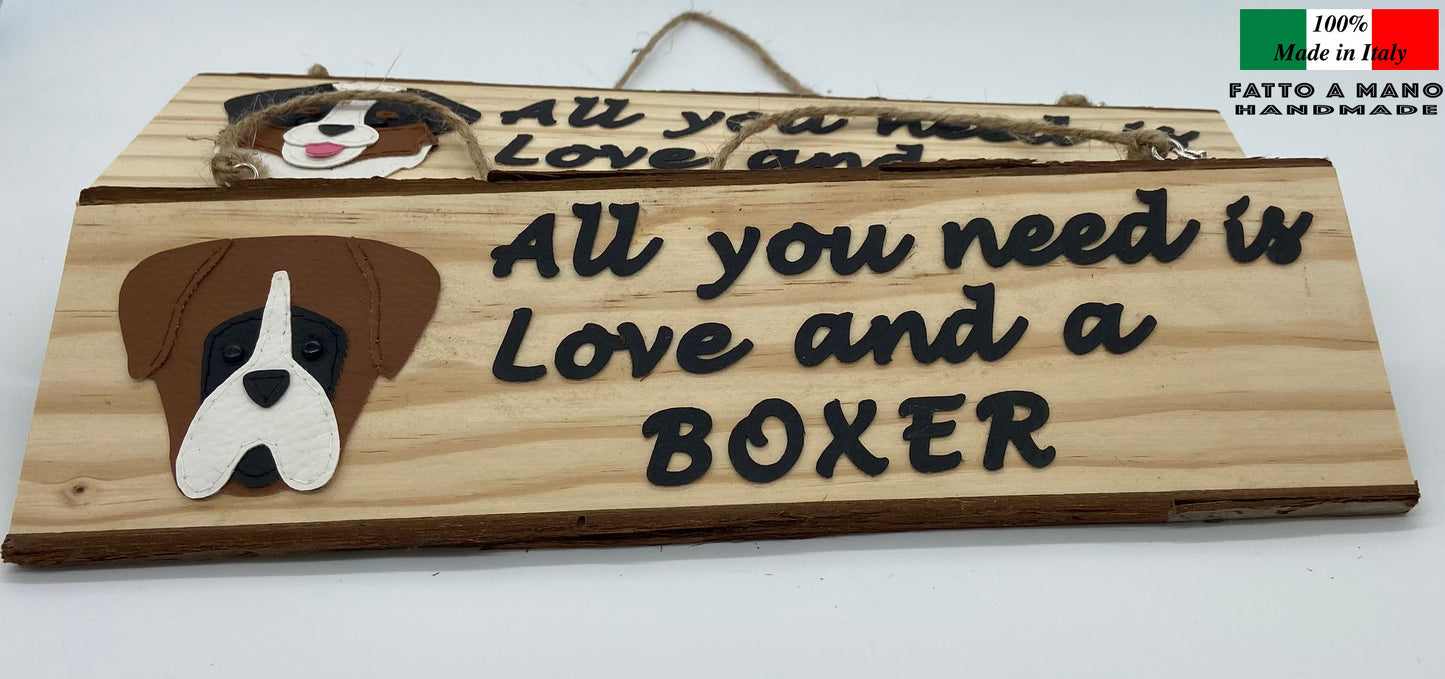 100%
Made in Italy
FATTO A MANO
HANDMADE
All you need is
Love and
All you need is
Love and a
BOXER